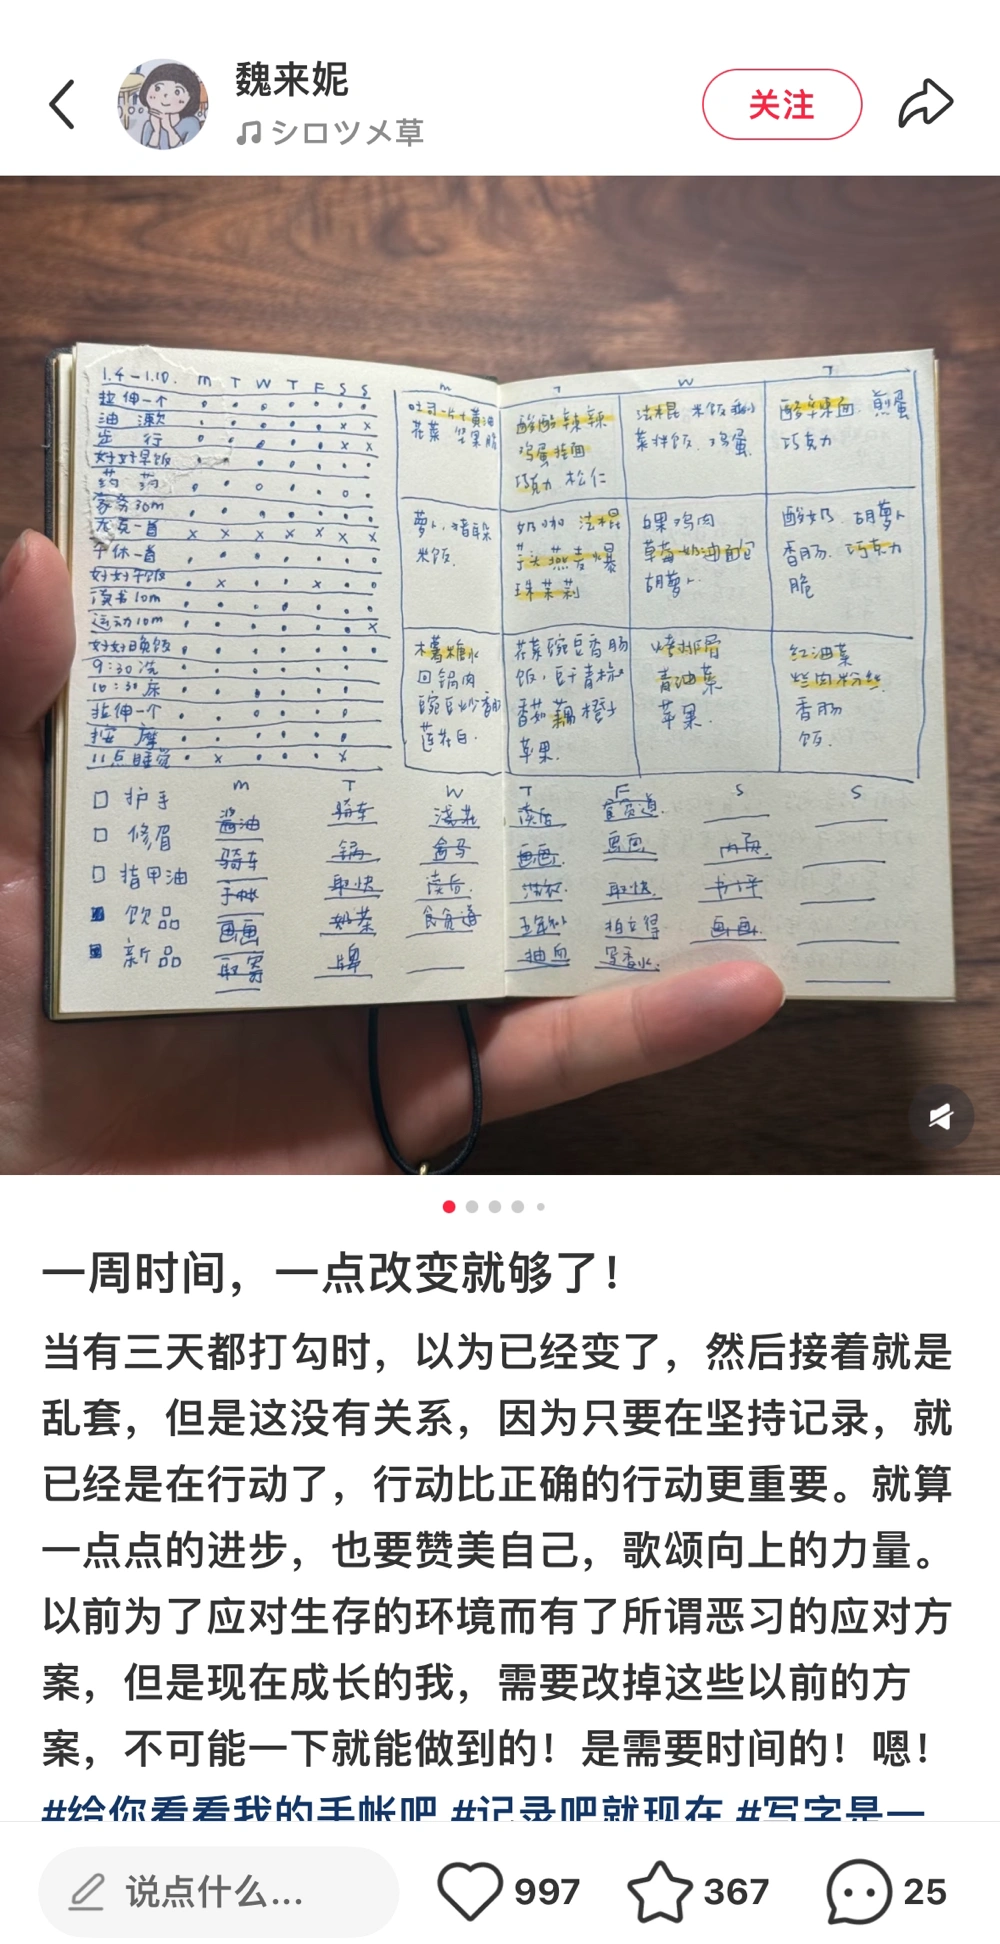 魏来妮
シロツメ草
关注
1.4-1.10. m T W T F S S
拉伸一个
油
步行
好好早饭
家务30m
午休一首
好好午饭
读书10m
运动10m
好好晚饭
9:30洗
10:30床
拉伸一个
按摩
11点睡觉
m T W T
花菜 坚果脆
鸡蛋挂面
巧克力 松仁
法棍 米饭
菜拌饭 鸡蛋
煎蛋
巧克力
萝卜
米饭.
奶咖 法棍
芋头燕麦爆
珠茉莉
白果鸡肉
草莓奶油面包
胡萝卜.
酸奶 胡萝卜
香肠. 巧克力
脆
木薯糖水
回锅肉
花菜豌豆香肠
饭, 豆干青椒
香菇 藕 橙子
苹果.
烤排骨
青油菜
苹果.
红油菜
烂肉粉丝
香肠
饭.
m T W T F S S
护手
修眉
指甲油
饮品
新品
酱油
骑车
画画
骑车
锅
取快
奶茶
牌
盒马
读后.
读后
画画.
抽血
取快.
拍立得
写香水.
书评
画画.
一周时间，一点改变就够了！
当有三天都打勾时，以为已经变了，然后接着就是
乱套，但是这没有关系，因为只要在坚持记录，就
已经是在行动了，行动比正确的行动更重要。就算
一点点的进步，也要赞美自己，歌颂向上的力量。
以前为了应对生存的环境而有了所谓恶习的应对方
案，但是现在成长的我，需要改掉这些以前的方
案，不可能一下就能做到的！是需要时间的！嗯！
#给你看看我的手帐吧 #记录吧就现在 #写字是一
说点什么...
997
367
25